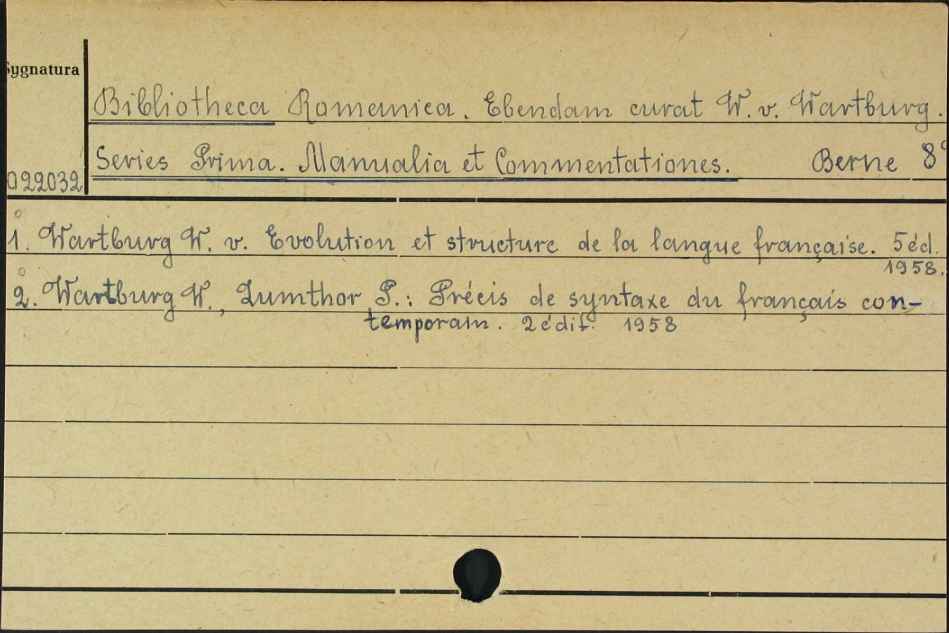 Sygnatura
Bibliotheca Romanica. Ebendam curat W. v. Wartburg.
Series Prima. Manualia et Commentationes. Berne 8°
022032
1. Wartburg W. v. Evolution et structure de la langue française. 5 éd.
1958.
2. Wartburg W., Zumthor P.: Précis de syntaxe du français con-
temporain. 2 édit. 1958